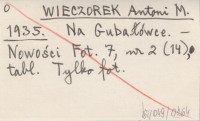 WIECZOREK Antoni M.
1935. Na Gubałówce. –
Nowości Fot. 7, nr 2 (14),
tabl. Tylko fot.